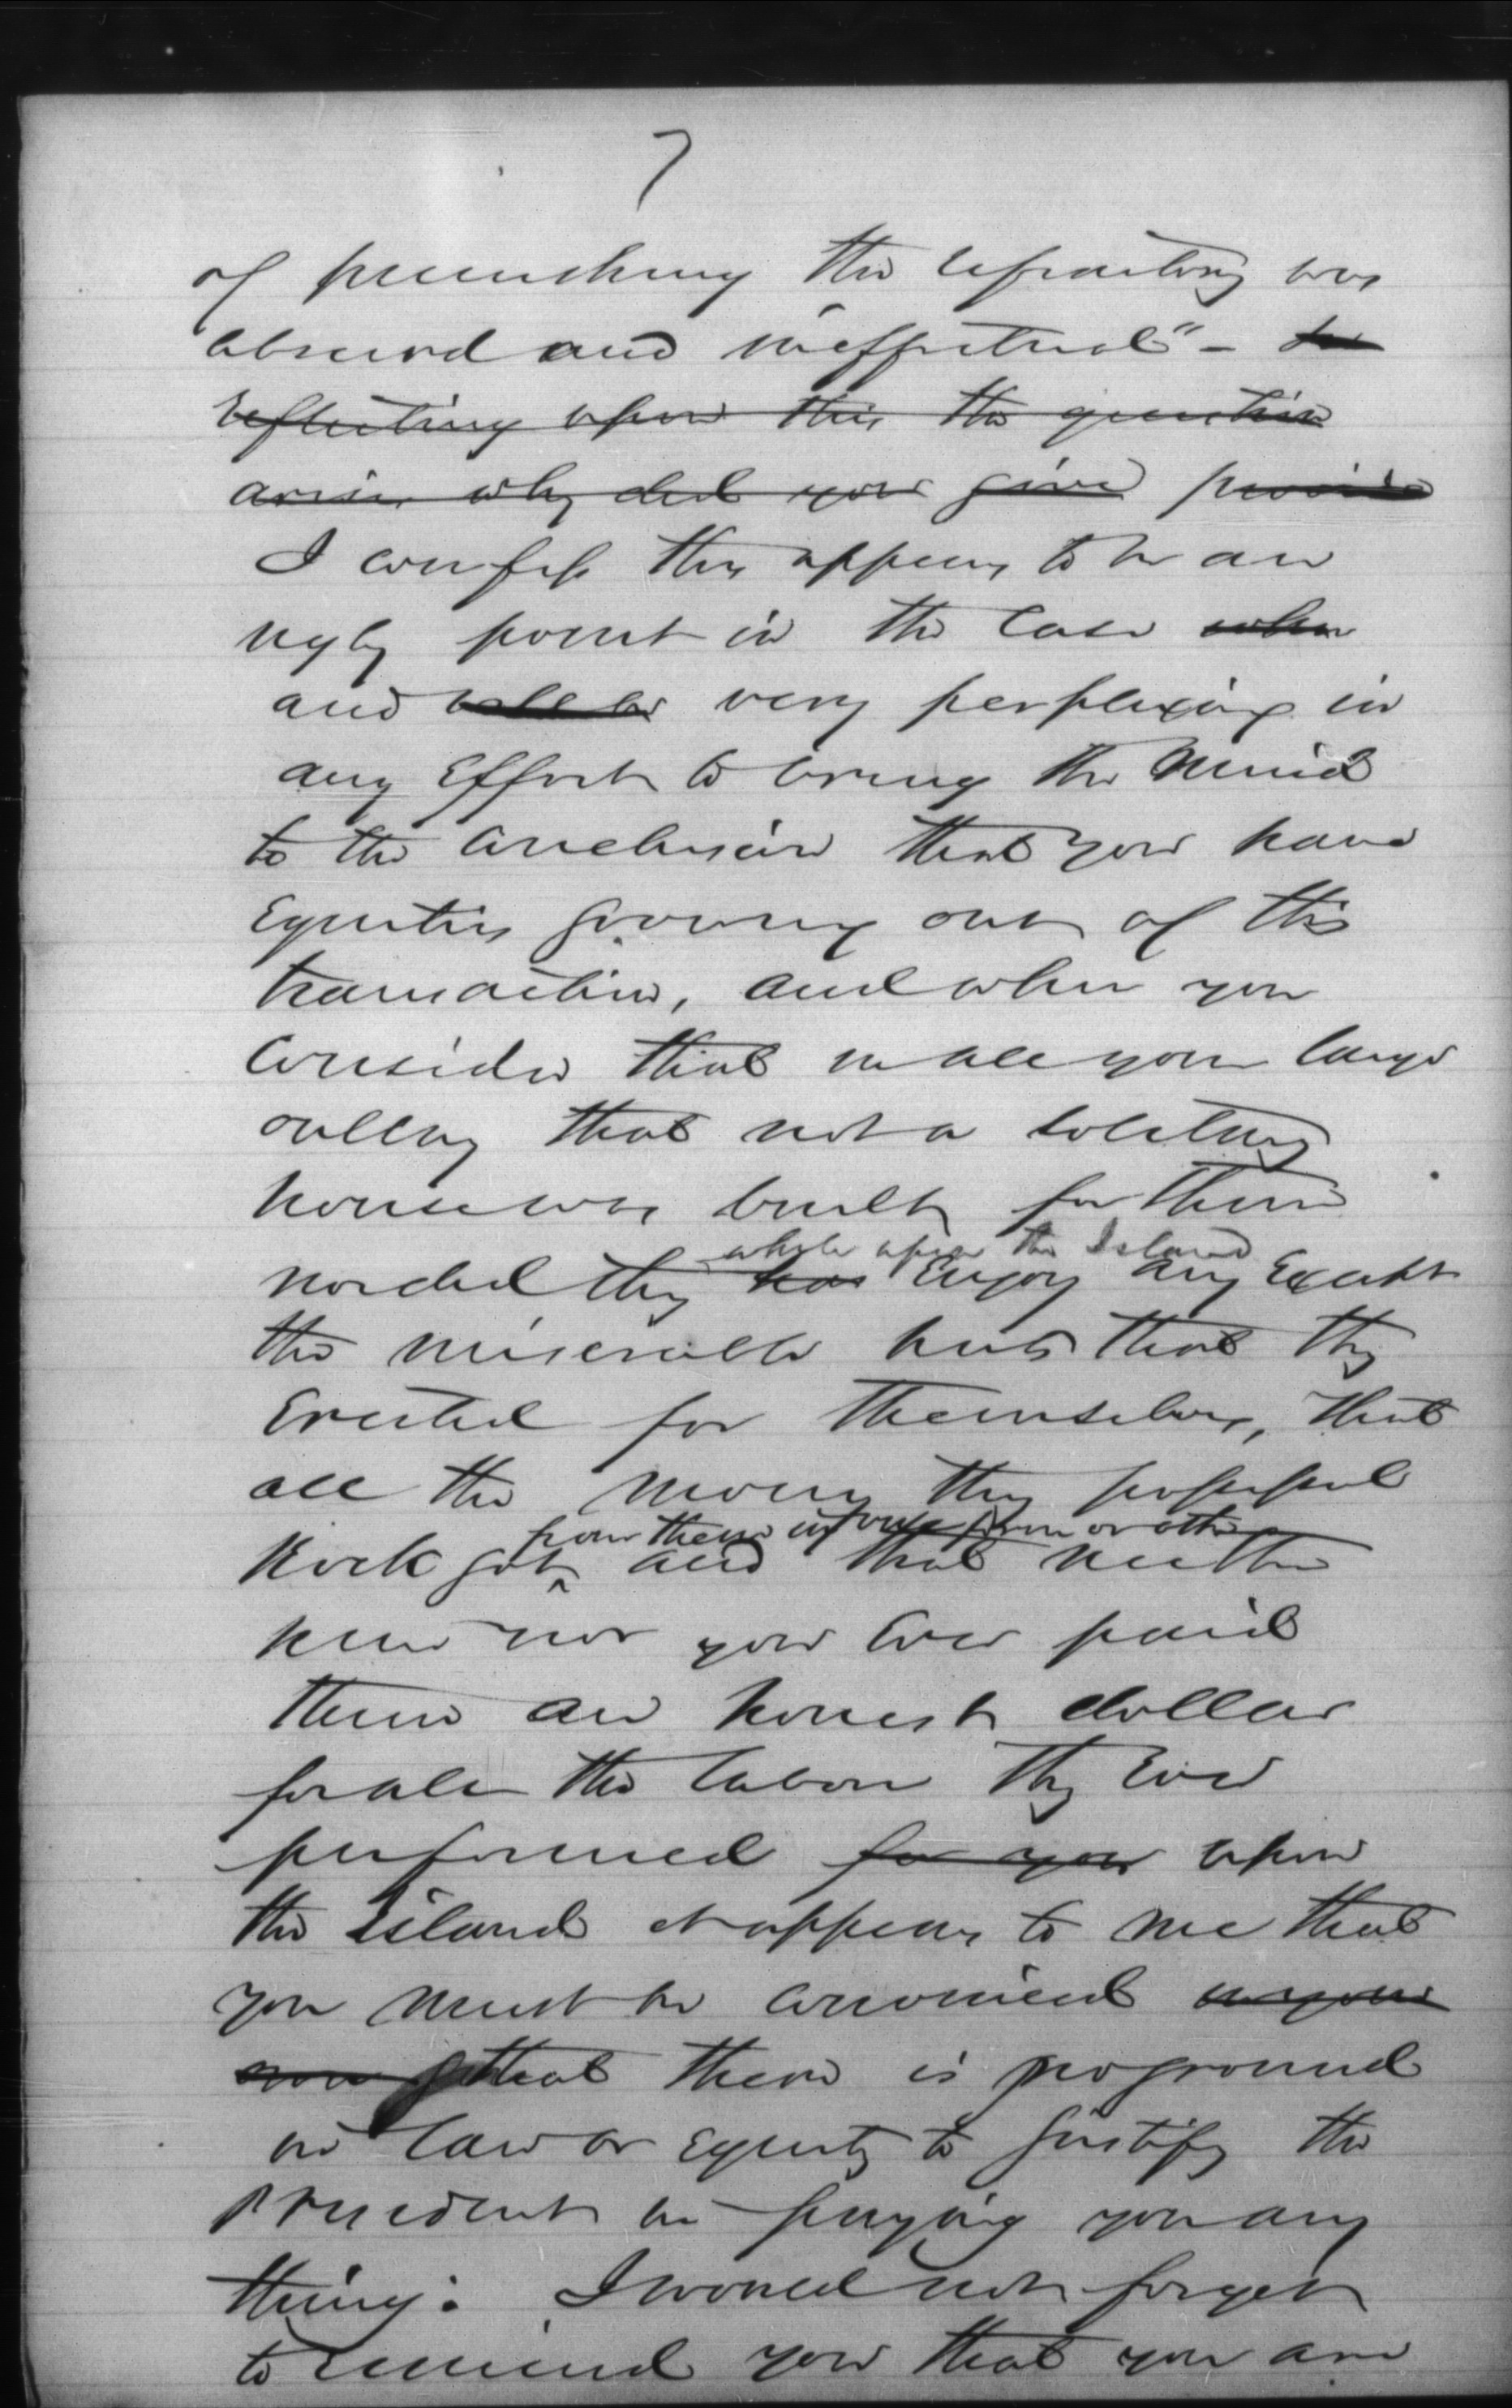 7
of punishing the refractory was
absurd and ineffectual" -
reflecting upon this the question
arises why did you give
I confess this appears to be an
ugly point in the case when
and very perplexing in
any Effort to bring the mind
to the Conclusion that you have
Equities growing out of this
transaction, and when you
Consider that in all your large
outlay that not a solitary
house was built for them
while upon the Island
nor did they has Enjoy any Except
the miserable huts that they
Erected for themselves, that
all the money they possessed
from them in some form or other
Kock got and that neither
him nor you Ever paid
them an honest dollar
for all the labor they Ever
performed for you upon
the Island it appears to me that
you must be convinced
that there is no ground
in law or Equity to justify the
President in paying you any
thing. I would not forget
to remind you that you are